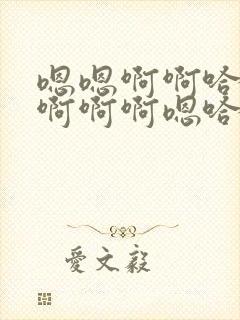 嗯嗯啊啊哈
啊啊啊嗯哈
爱文毅